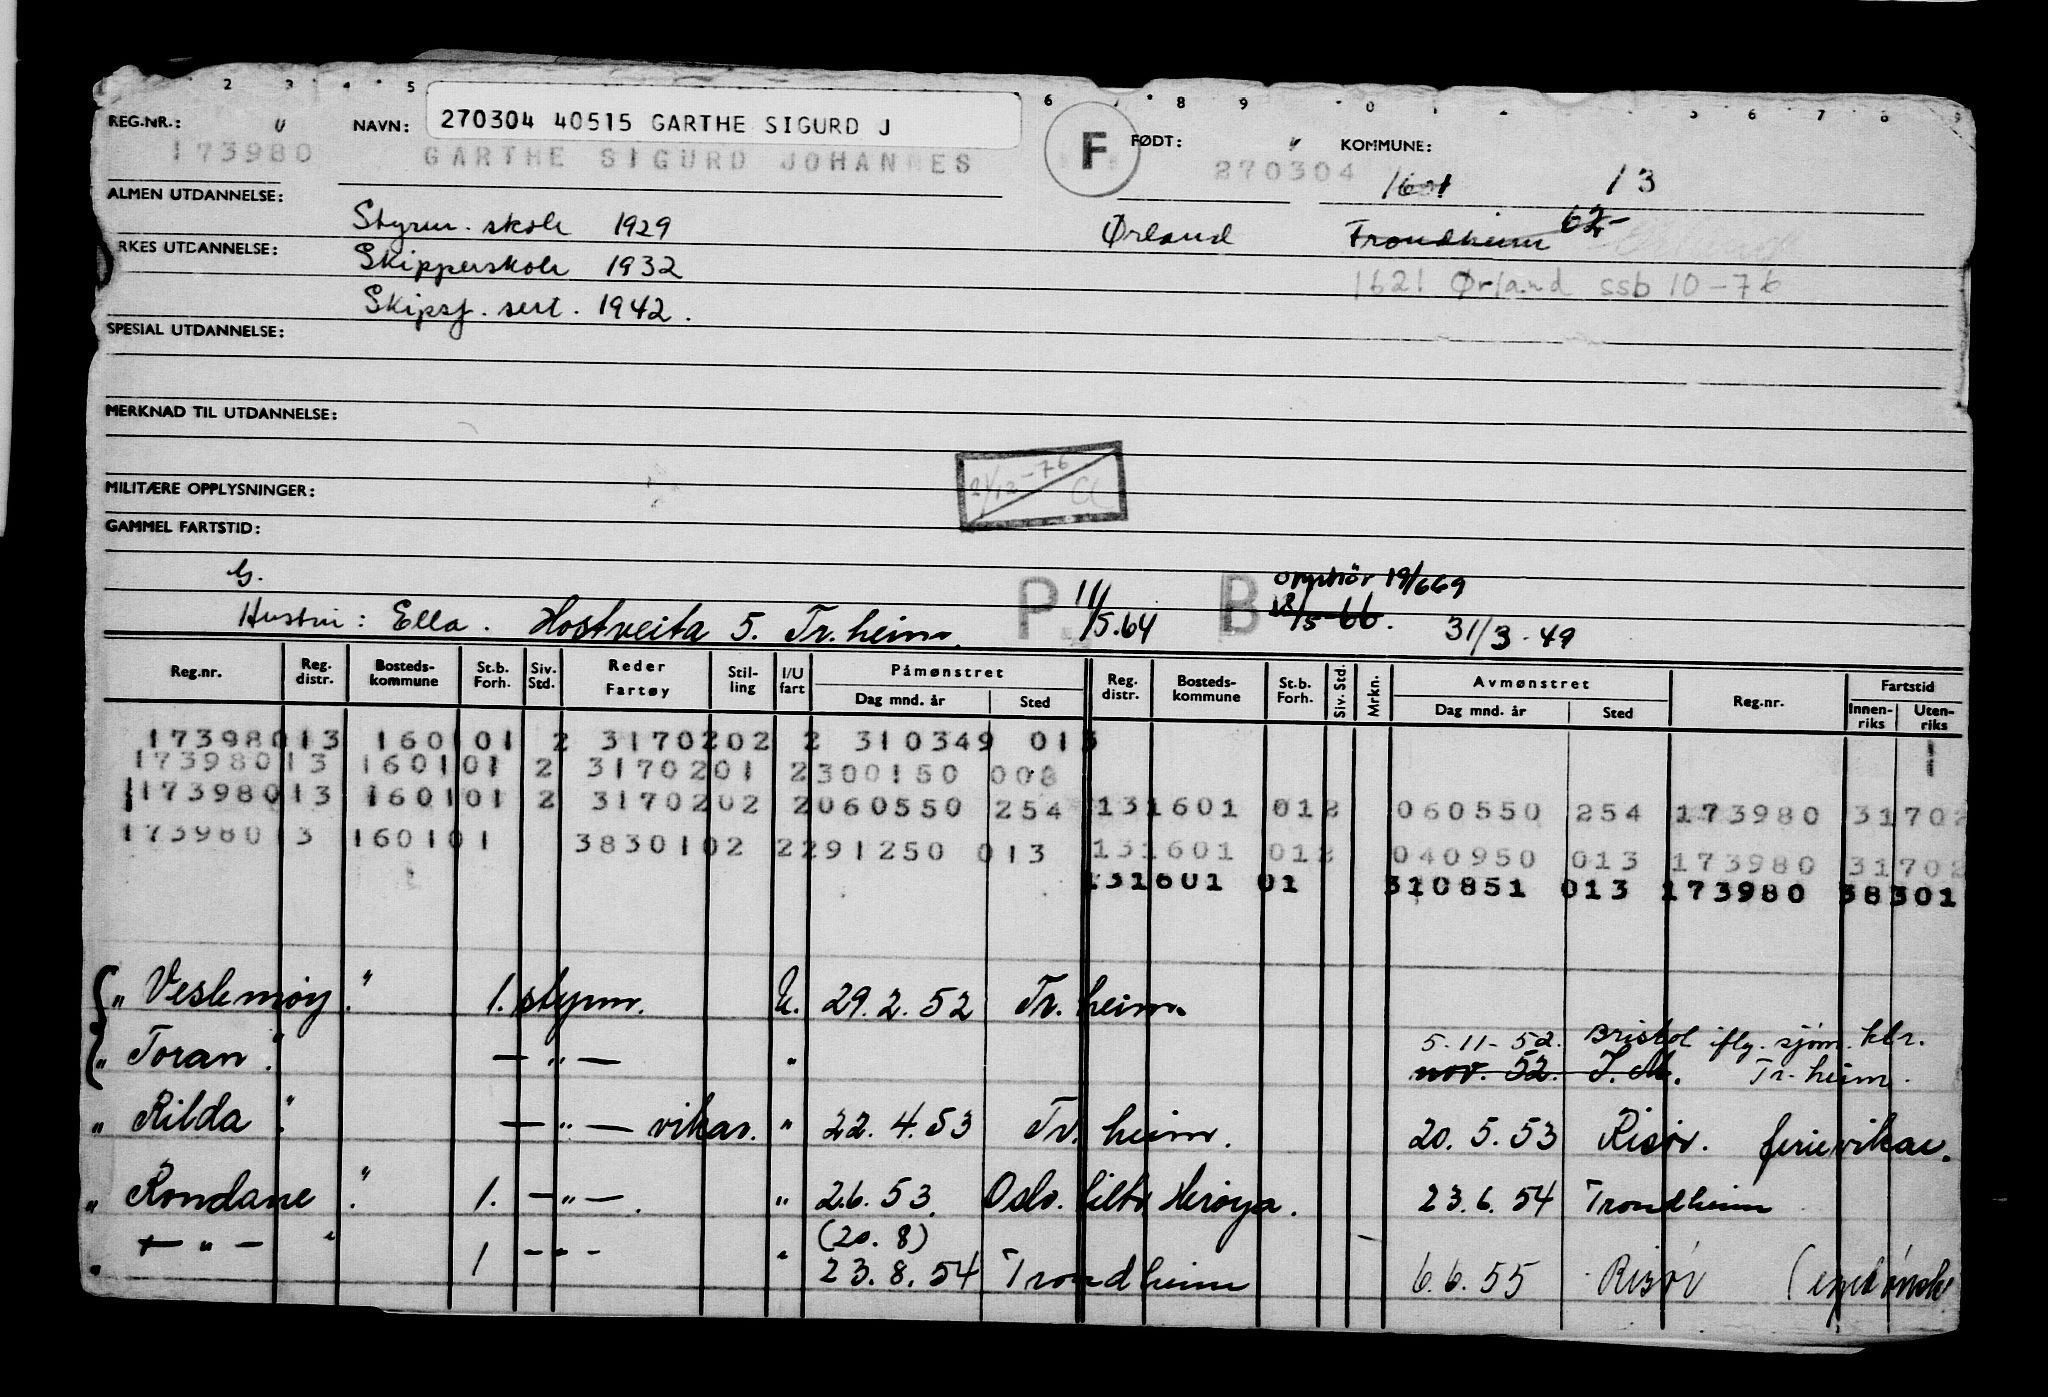 2 3 4 5 6 7 8 9 0 1 2 5 6 7 8 9
REG.NR.: NAVN: 270304 40515 GARTHE SIGURD J F FØDT: KOMMUNE:
173980 GARTHE SIGURD JOHANNES 270304 1601 13
ALMEN UTDANNELSE: Styrm. skole 1929 Ørland Trondheim 62-
RKES UTDANNELSE: Skipperskole 1932 1621 Ørland ssb 10-76
Skipsf. sert. 1942.
SPESIAL UTDANNELSE:
MERKNAD TIL UTDANNELSE:
21/12-76 Cl
MILITÆRE OPPLYSNINGER:
GAMMEL FARTSTID:
G. opphør 19/6 69
Hustru: Ella. Hostveita 5. Tr.heim. P 11/5.64 B 18/5-66. 31/3-49
Reg.nr. Reg. distr. Bosteds-kommune St.b. Forh. Siv. Std. Reder Fartøy Stil-ling I/U fart Påmønstret Dag mnd. år Sted Reg. distr. Bosteds-kommune St.b. Forh. Siv. Std. Mrkn. Avmønstret Dag mnd. år Sted Reg.nr. Fartstid Innen-riks Uten-riks
173980 13 1601 01 2 31702 02 2 310349 013
173980 13 1601 01 2 31702 01 2 300150 008
173980 13 1601 01 2 31702 02 2 060550 254 13 1601 01 2 060550 254 173980 31702
173980 13 1601 01 38301 02 2 291250 013 13 1601 01 2 040950 013 173980 31702
13 1601 01 310851 013 173980 38301
" Veslemøy". 1. styrm. U. 29.2.52 Tr.heim.
" Toran". — " — " 5-11-52. Bristol iflg. sjøm.ktr.
nov. 52. J.M. Tr.heim.
" Rilda". — " — vikar. " 22.4.53 Tr.heim. 20.5.53 Risør. ferievikar.
" Rondane". 1. — " —. " 2.6.53. Oslo. tiltr. Herøya. 23.6.54 Trondheim
— " — " 1 - " - " (20.8)
23.8.54 Trondheim 6.6.55 Risør (eget ønske